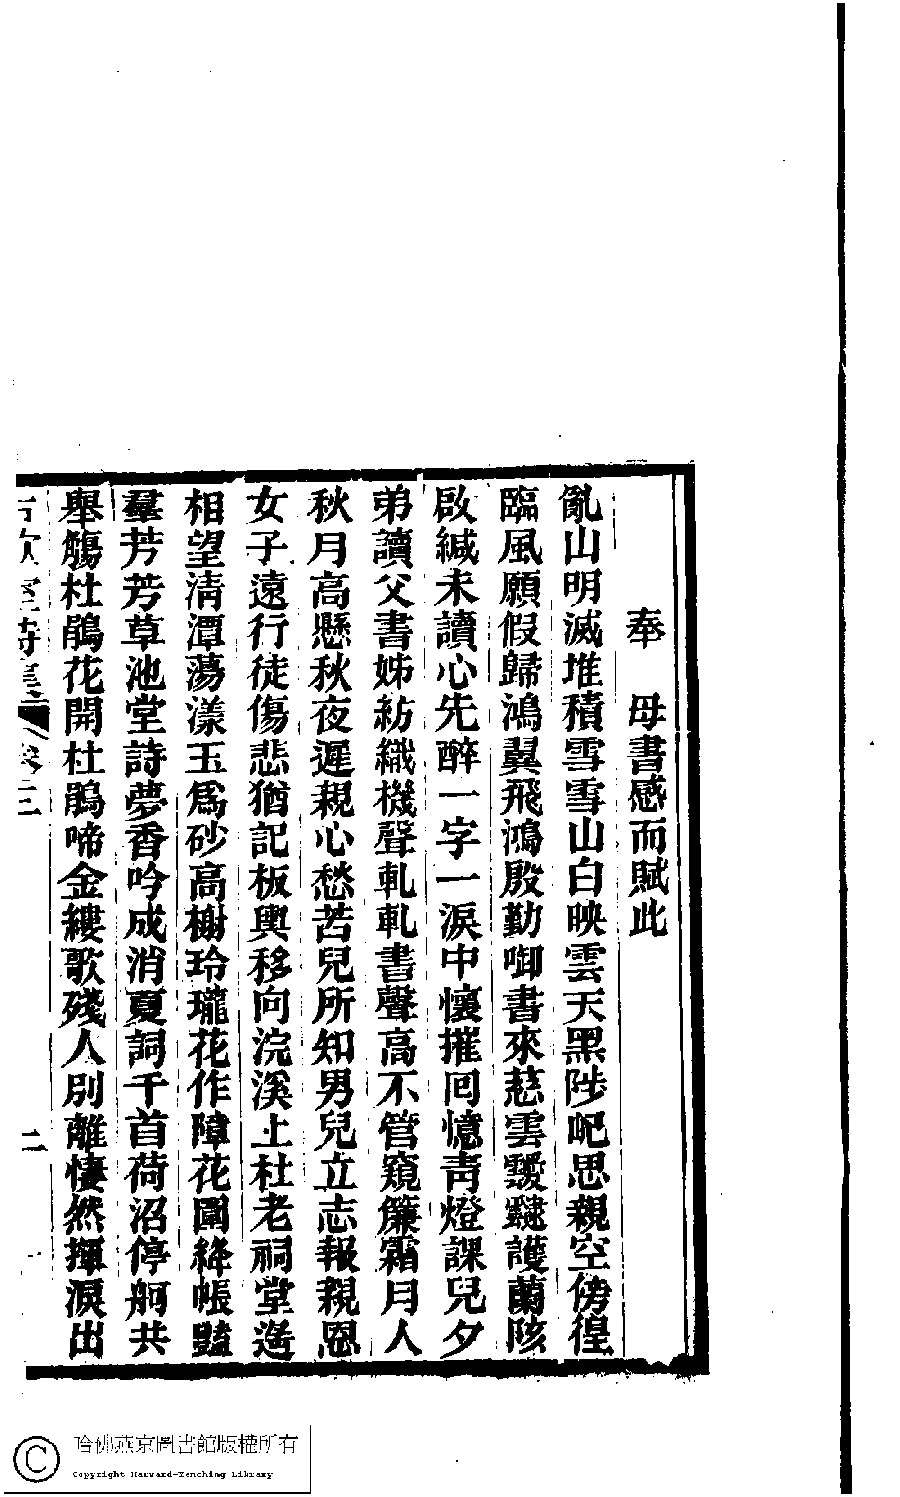 奉　母書感而賦此
亂山明滅堆積雪雪山白映雲天黑陟屺思親空傍徨
臨風願假歸鴻翼飛鴻殷勤啣書來慈雲靉靆護蘭陔
啟緘未讀心先醉一字一淚中懷摧囘憶靑燈課兒夕
弟讀父書姊紡織機聲軋軋書聲高不管窺簾霜月人
秋月高懸秋夜遲親心愁苦兒所知男兒立志報親恩
女子遠行徒傷悲猶記板輿移向浣溪上杜老祠堂遙
相望淸潭蕩漾玉爲砂高榭玲瓏花作障花圍絳帳豔
羣芳芳草池堂詩夢香吟成消夏詞千首荷沼停舸共
舉觴杜鵑花開杜鵑啼金縷歌殘人別離悽然揮淚出
卷三
二
哈佛燕京圖書館版權所有
Copyright Harvard-Yenching Library